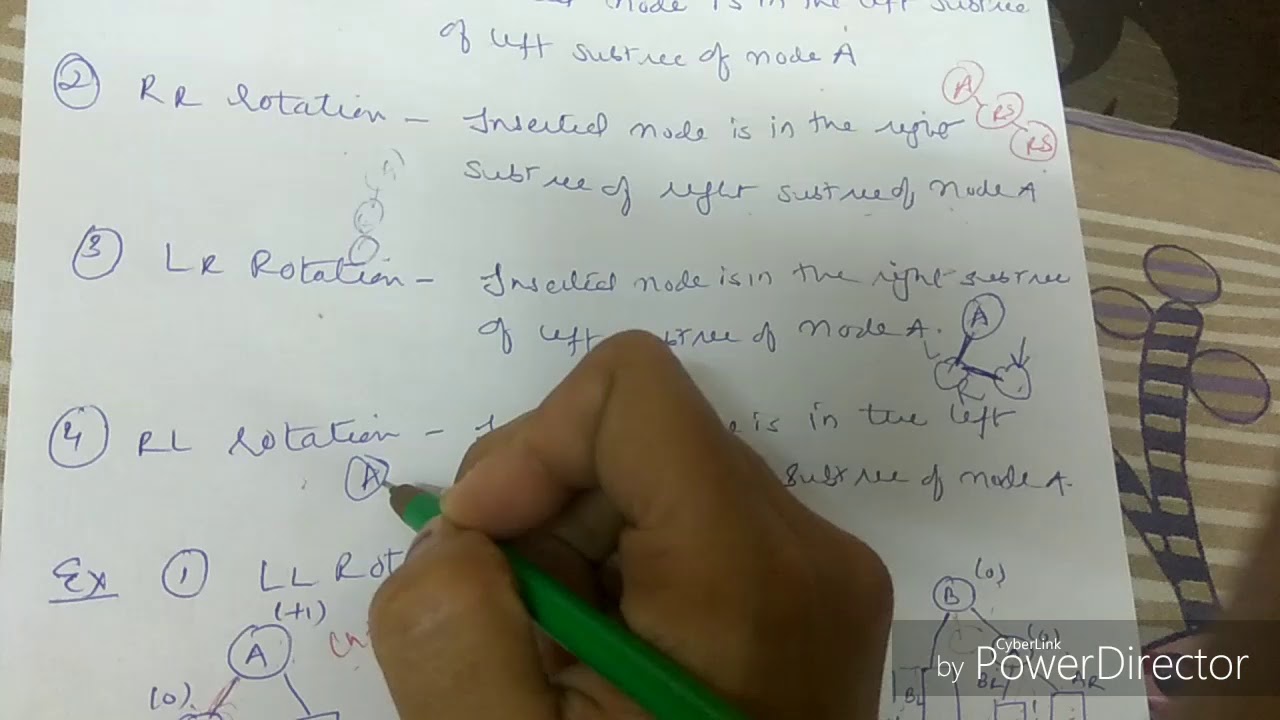 node is in the left subtree
of left subtree of node A
② RR rotation – Inserted node is in the right
subtree of right subtree of node A
A
RS
RS
③ LR Rotation – Inserted node is in the right subtree
of left subtree of node A.
A
R
④ RL rotation – is in the left
subtree of node A.
A
Ex ① LL Rot
(+1)
A
(0)
(0)
B
BL
BR
AR
CyberLink
by PowerDirector